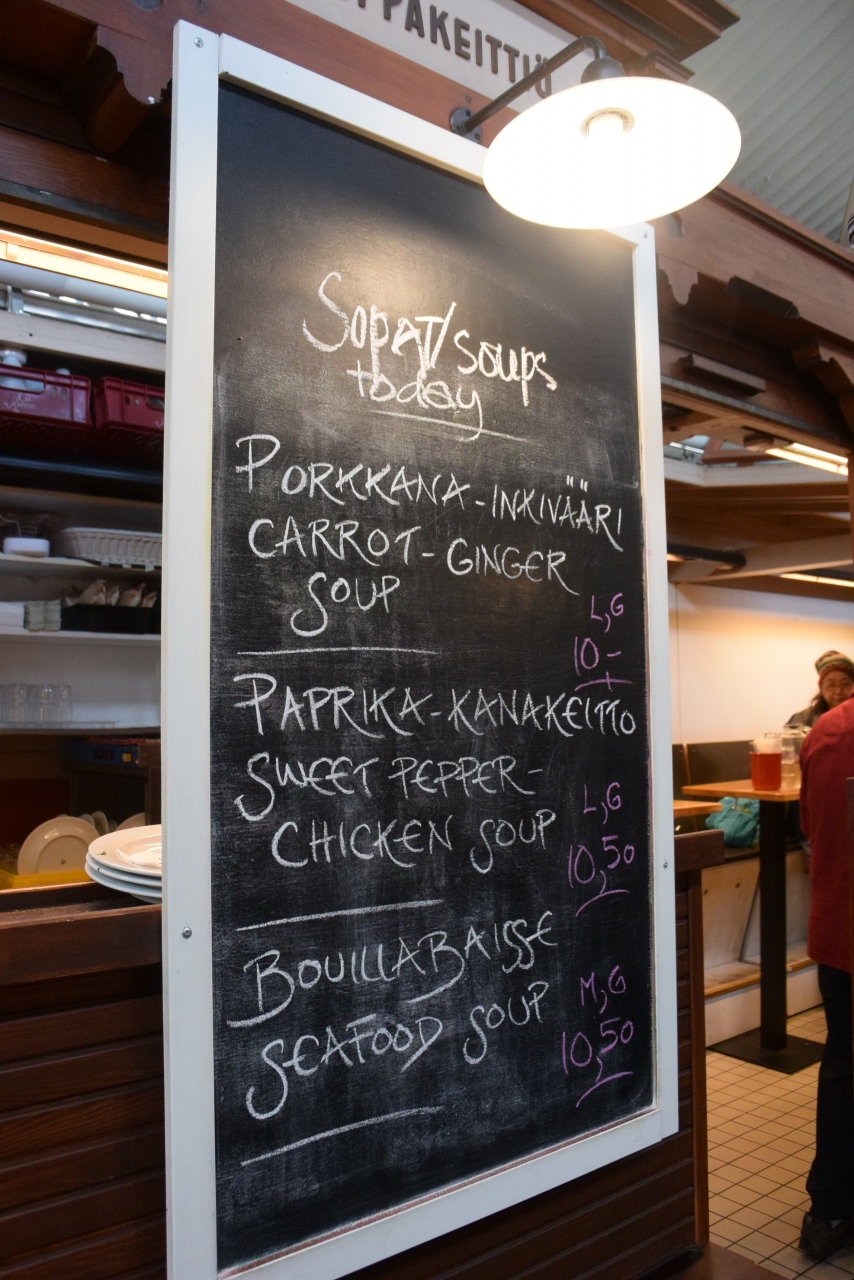 PPAKEITTIÖ
SOPAT/SOUPS
today
PORKKANA-INKIVÄÄRI
CARROT-GINGER
SOUP
L,G
10-
PAPRIKA-KANAKEITTO
SWEET PEPPER-
CHICKEN SOUP
L,G
10,50
BOUILLABAISSE
SEAFOOD SOUP
M,G
10,50